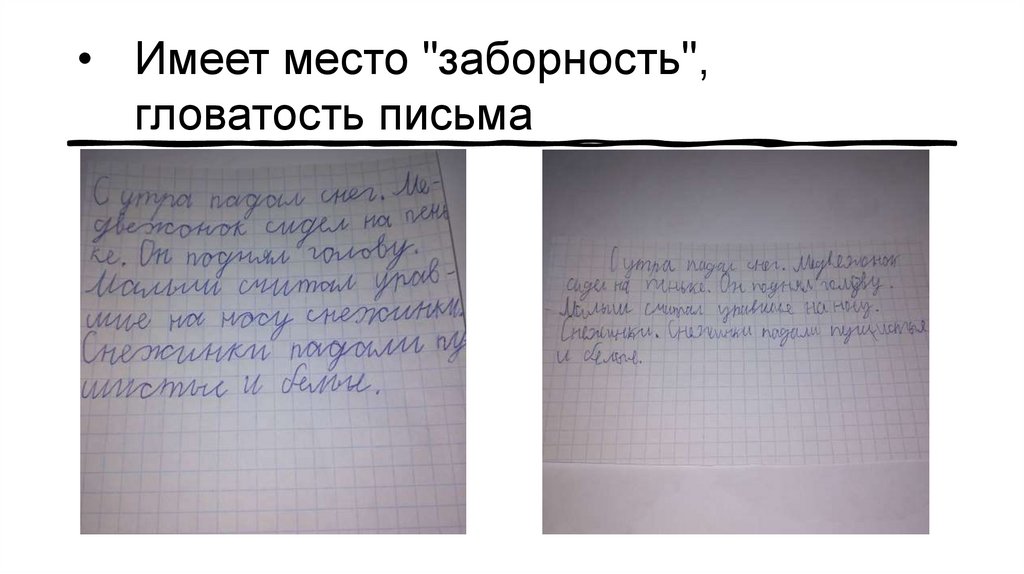 • Имеет место "заборность",
гловатость письма
С утра падал снег. Ме-
двежонок сидел на пень
ке. Он поднял голову.
Малыш считал урав-
шие на носу снежинки.
Снежинки падали пу
шистые и белые.
С утра падал снег. Медвежонок
сидел на пиньке. Он поднял голову.
Малыш считал уравшие на носу.
Снежинки. Снежинки падали пушистыя
и белые.